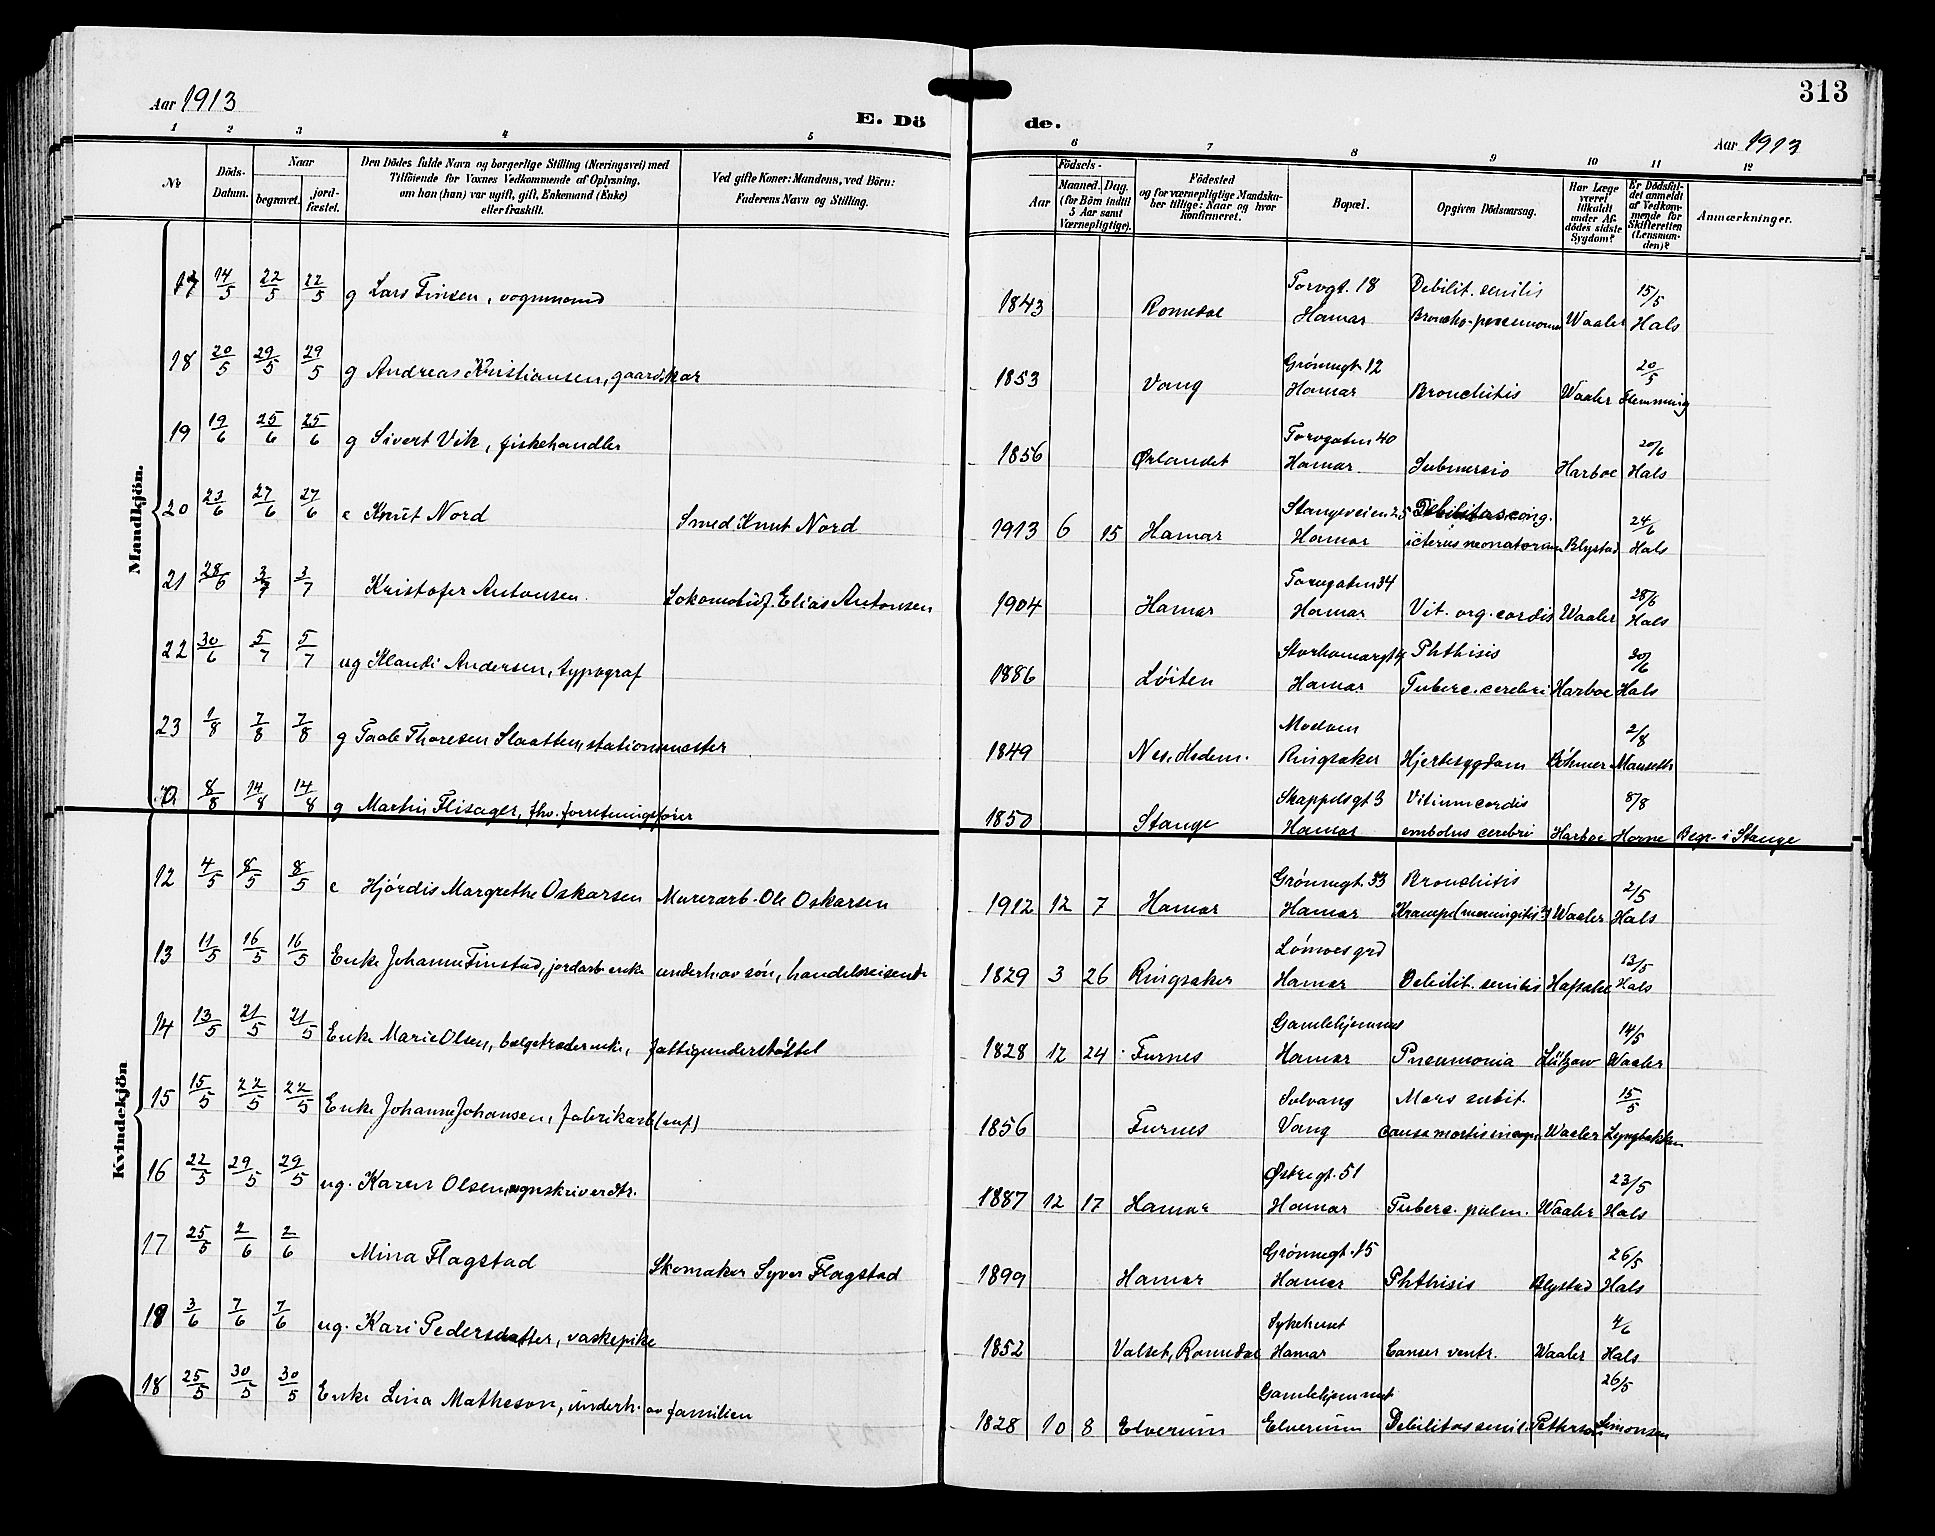 313
Aar 1913
E. Dö de.
Aar 1913
1 2 3 4 5 6 7 8 9 10 11 12
Nr.
Döds-Datum.
Naar
begravet.
jordfæstet.
Den Dödes fulde Navn og borgerlige Stilling (Næringsvei) med
Tilföiende for Voxnes Vedkommende af Oplysning,
om han (hun) var ugift, gift, Enkemand (Enke)
eller fraskilt.
Ved gifte Koner: Mandens, ved Börn:
Faderens Navn og Stilling.
Födsels-
Aar
Maaned. Dag.
(for Börn indtil
5 Aar samt
Værnepligtige).
Födested
og for værnepligtige Mandskaber tillige: Naar og hvor
konfirmeret.
Bopæl.
Opgiven Dödsaarsag.
Har Læge
været
tilkaldt
under Afdödes sidste
Sygdom?
Er Dödsfaldet anmeldt
af Vedkommende for
Skifteretten
(Lensmanden)?
Anmærkninger.
Mandkjön.
17 14/5 22/5 22/5 g Lars Finsen, vognmand 1843 Romedal Torvgt. 18 Hamar Debilit. senilis Broncho-pneumonia Waaler 15/5 Hals
18 20/5 29/5 29/5 g Andreas Kristiansen, gaardskar 1853 Vang Grønnegt. 12 Hamar Bronchitis Waaler 20/5 Flemming
19 19/6 25/6 25/6 g Sivert Vik, fiskehandler 1856 Ørlandet Torvgaten 40 Hamar Submersio Harboe 20/6 Hals
20 23/6 27/6 27/6 e Knut Nord Smed Knut Nord 1913 6 15 Hamar Stangeveien 25 Hamar Debilitas cong. icterus neonatorum Blystad 24/6 Hals
21 28/6 3/7 3/7 Kristofer Antonsen Lokomotivf. Elias Antonsen 1904 Hamar Torvgaten 34 Hamar Vit. org. cordis Waaler 28/6 Hals
22 30/6 5/7 5/7 ug Klaudi Andersen, typograf 1886 Løiten Hamar Phthisis Tuberc. cerebri Harboe 30/6 Hals
23 1/8 7/8 7/8 g Taale Thoresen Slaatten, stationsmester 1849 Nes, Hedem. Moelven Ringsaker Hjertesygdom Bøhmer 2/8 Mauseth
8/8 14/8 14/8 g Martin Flisager, fhv. forretningsfører 1850 Stange Skappelsgt 3 Hamar Vitium cordis embolus cerebri Harboe 8/8 Horne Begr. i Stange
Kvindekjön
12 4/5 8/5 8/5 e Hjørdis Margrethe Oskarsen Murerarb. Ole Oskarsen 1912 12 7 Hamar Grønnegt. 33 Hamar Bronchitis Kramper (meningitis?) Waaler 2/5 Hals
13 11/5 16/5 16/5 Enke Johanne Finstad, jordarb.enke underh. av søn, handelsreisende 1829 3 26 Ringsaker Hamar Debilit. senilis 13/5 Hals
14 13/5 21/5 21/5 Enke Marie Olsen, bælgetræderenke, fattigunderstøttet 1828 12 24 Furnes Gamlehjemmet Hamar Pneumonia Lützow 14/5 Waaler
15 15/5 22/5 22/5 Enke Johanne Johansen, fabrikarb. 1856 Furnes Solvang Vang Mors subit. causa mortis Waaler 15/5 Lyngbakken
16 22/5 29/5 29/5 ug. Karen Olsen, sognskriverdtr. 1887 12 17 Hamar Østregt. 51 Hamar Tuberc. pulm. Waaler 23/5 Hals
17 25/5 2/6 2/6 Mina Flagstad Skomaker Syver Flagstad 1899 Hamar Grønnegt. 15 Hamar Phthisis Blystad 26/5 Hals
18 3/6 7/6 7/6 ug. Kari Pedersdatter, vaskepike 1852 Valset, Romedal Sykehuset Hamar Cancer ventr. Waaler 4/6 Hals
18 25/5 30/5 30/5 Enke Lina Matheson, underh. av familien 1828 10 8 Elverum Gamlehjemmet Elverum Debilitas senil. Petterson 26/5 Simonsen